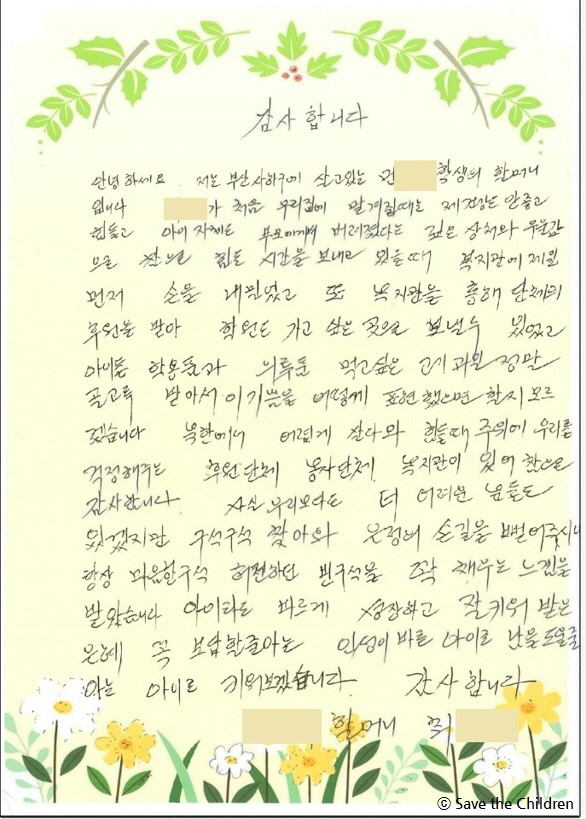 감사합니다
안녕하세요. 저는 부산사하구에 살고있는 민 학생의 할머니
입니다 가 처음 우리집에 맡겨질때는 제건강도 안좋고
힘들고 아이 자체도 부모에게서 버려졌다는 깊은 상처와 우울감
으로 참으로 힘든 시간을 보내고 있을때 복지관에 제일
먼저 손을 내밀었고 또 복지관을 통해 단체의
후원을 받아 학원도 가고 싶은 곳으로 보낼수 있었고
아이돌 학용품과 의류품 먹고싶은 고기 과일 정말
골고루 받아서 이기쁨을 어떻게 표현했으면 할지 모르
겠습니다 북한에서 어렵게 산다와 힘들때 주위에 우리를
걱정해주는 후원단체 봉사단체, 복지관이 있어 참으로
감사합니다. 사실 우리보다도 더 어려운 분들도
있겠지만 구석구석 찾아와 온정의 손길을 뻗어주시니
항상 마음한구석 허전하던 빈구석을 꼭꽉 채우는 느낌을
받았습니다 아이라도 바르게 성장하고 잘키워 받은
은혜 꼭 보답할줄아는 인성이 바른 아이로 남을도울줄
아는 아이로 키워보겠습니다. 감사합니다
할머니 최
© Save the Children